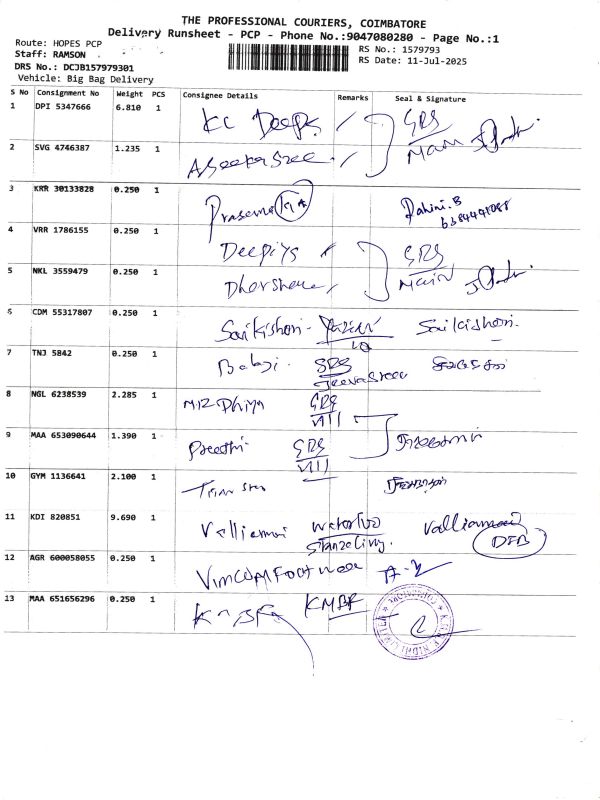 THE PROFESSIONAL COURIERS, COIMBATORE
Delivery Runsheet - PCP - Phone No.:9047080280 - Page No.:1
Route: HOPES PCP
Staff: RAMSON
RS No.: 1579793
DRS No.: DCJB157979301
RS Date: 11-Jul-2025
Vehicle: Big Bag Delivery
S No Consignment No Weight PCS Consignee Details Remarks Seal & Signature
1 DPI 5347666 6.810 1 KC Deepk GRS
Main
2 SVG 4746387 1.235 1
3 KRR 30133828 0.250 1 Dahini.B
6384441088
4 VRR 1786155 0.250 1 Deepiya GRS
Main
5 NKL 3559479 0.250 1
6 CDM 55317807 0.250 1 Saikishori Saikishori.
7 TNJ 5842 0.250 1 Balaji. GRS
Jeevasree
8 NGL 6238539 2.285 1 MR Dhiya GRS
VIII
9 MAA 653090644 1.390 1 Preethi GRS
VIII
10 GYM 1136641 2.100 1
11 KDI 820851 9.690 1 Valliamai Valliamai
12 AGR 600058055 0.250 1 VIMCOM Footwear
13 MAA 651656296 0.250 1 KMBF